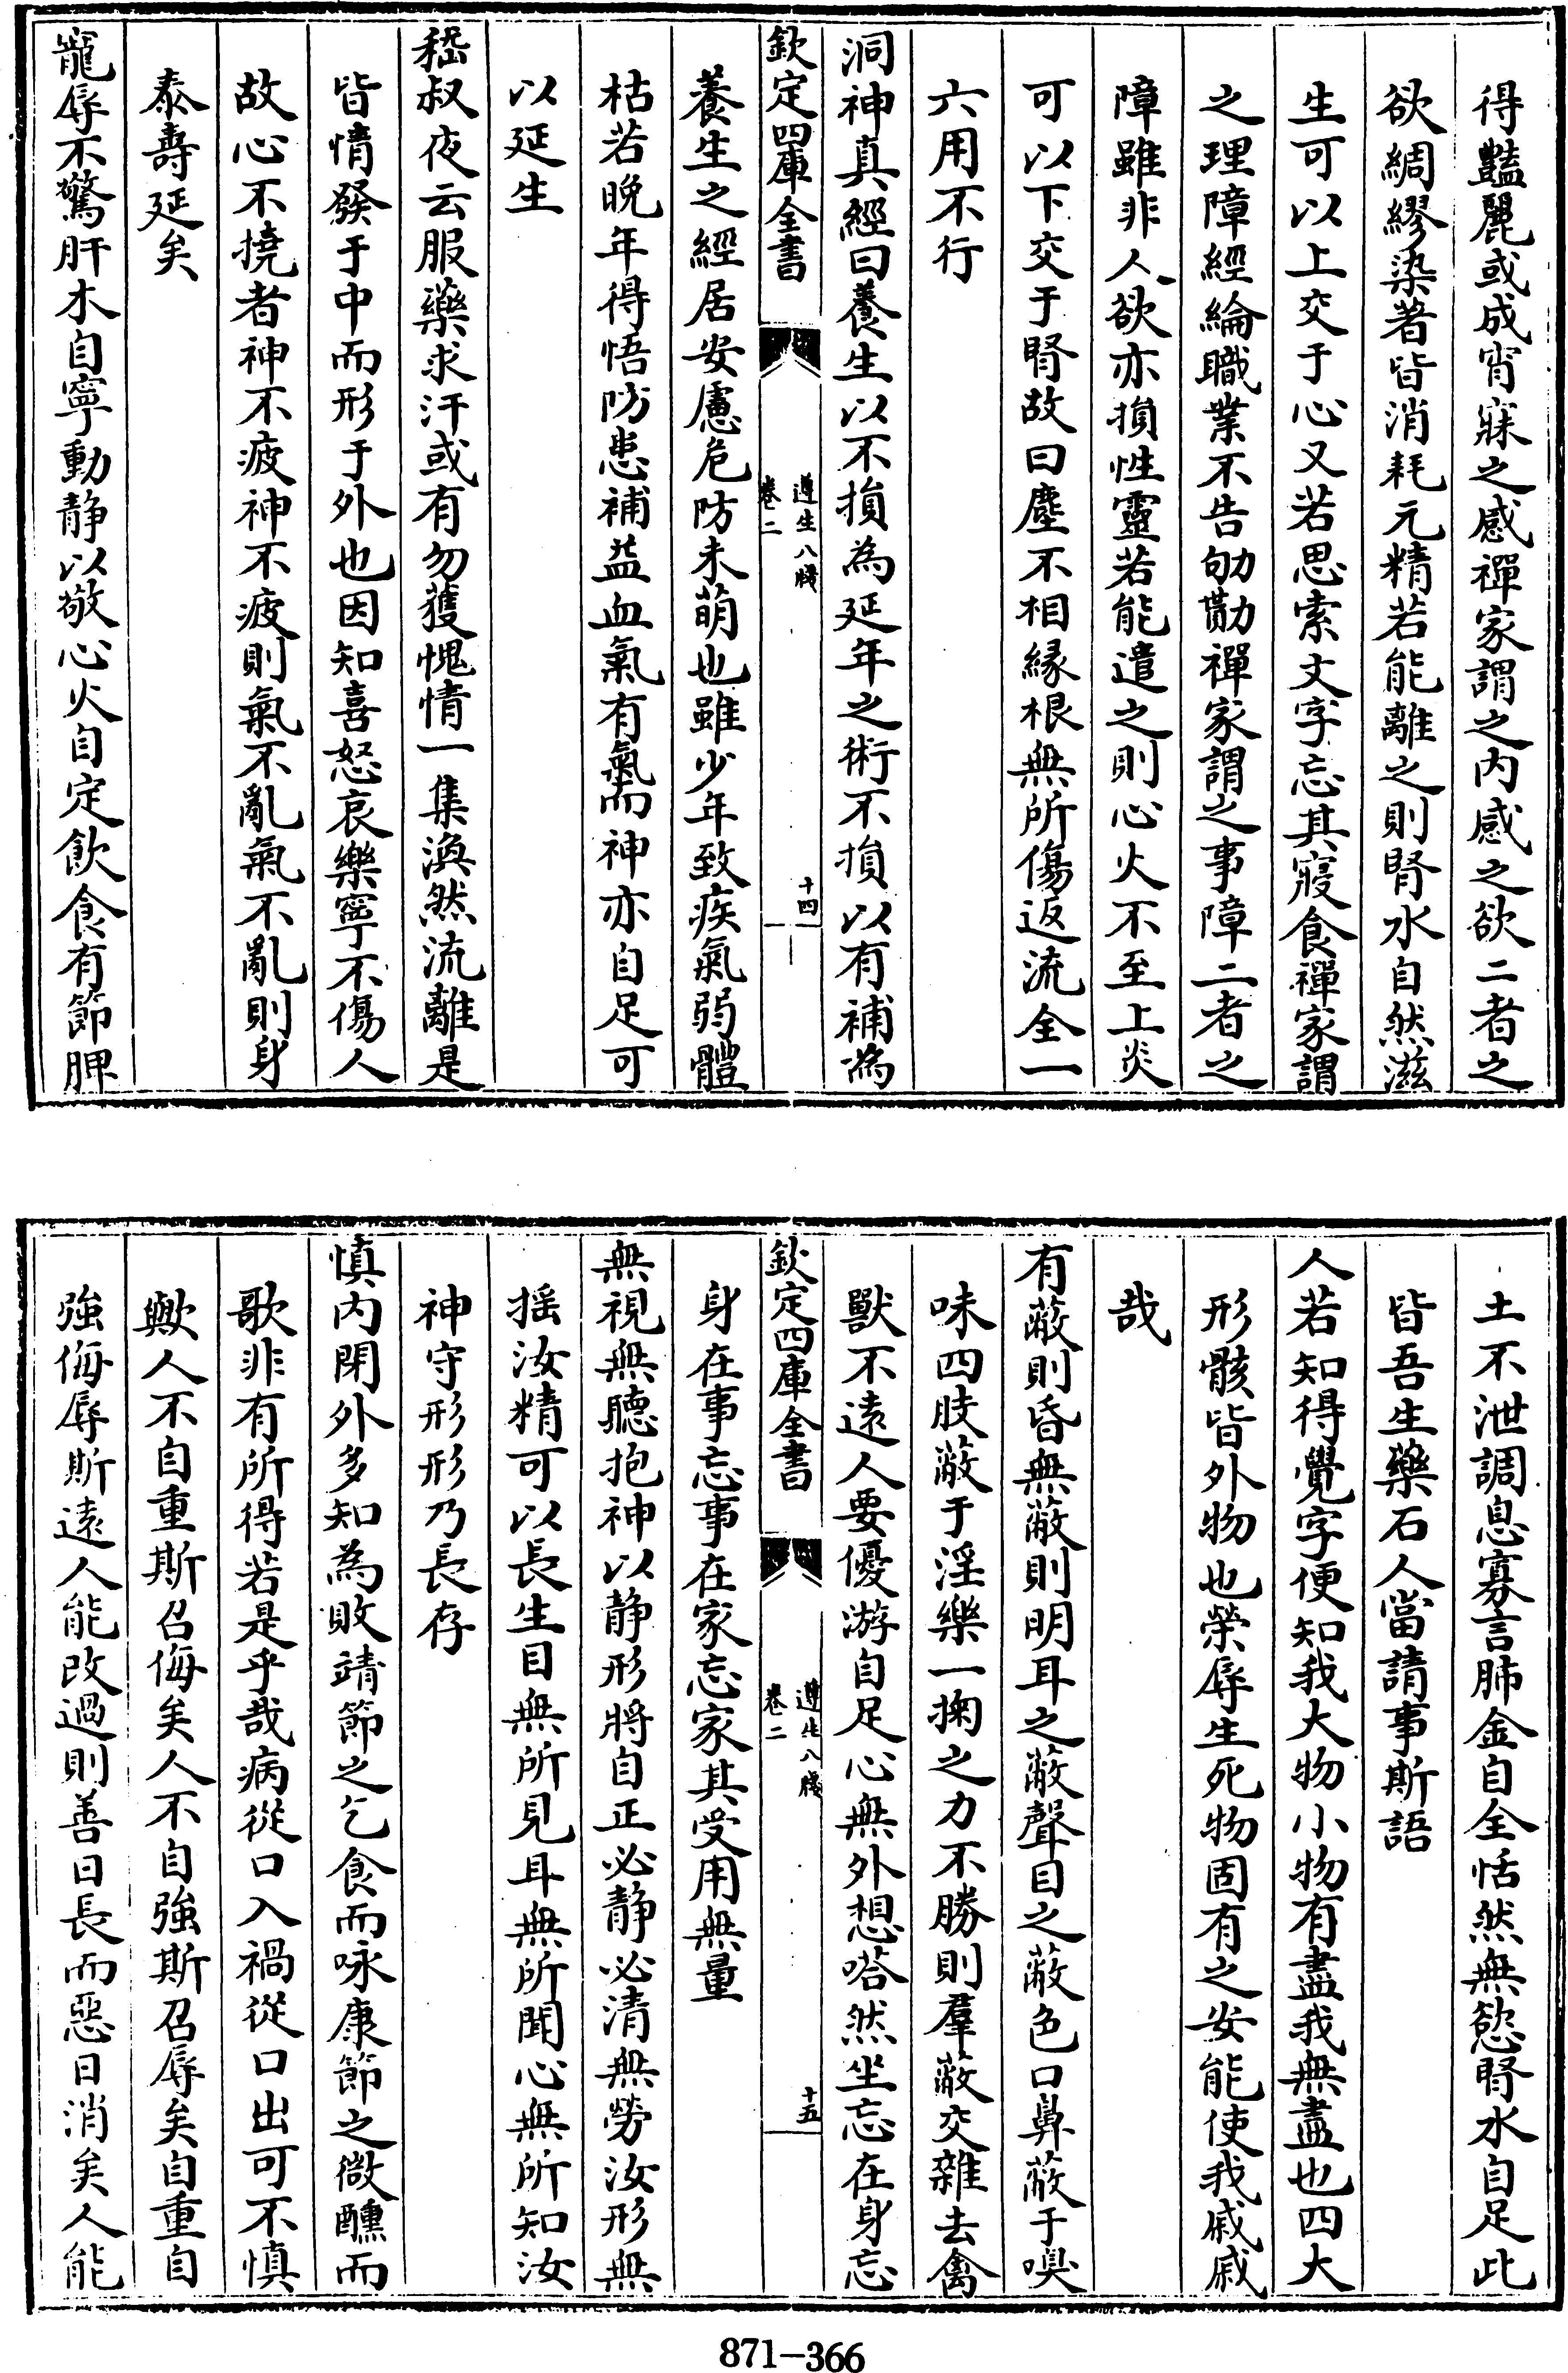 得豔麗或成宵寐之感禪家謂之内感之欲二者之
欲綢繆染著皆消耗元精若能離之則腎水自然滋
生可以上交于心又若思索文字忘其寢食禪家謂
之理障經綸職業不告劬勩禪家謂之事障二者之
障雖非人欲亦損性靈若能遣之則心火不至上炎
可以下交于腎故曰塵不相緣根無所傷返流全一
六用不行
洞神真經曰養生以不損為延年之術不損以有補為
欽定四庫全書
遵生八牋
卷二
十四
養生之經居安慮危防未萌也雖少年致疾氣弱體
枯若晚年得悟防患補益血氣有氣而神亦自足可
以延生
嵇叔夜云服藥求汗或有勿獲愧情一集渙然流離是
皆情發于中而形于外也因知喜怒哀樂寧不傷人
故心不撓者神不疲神不疲則氣不亂氣不亂則身
泰壽延矣
寵辱不驚肝木自寧動靜以敬心火自定飲食有節脾
土不泄調息寡言肺金自全恬然無慾腎水自足此
皆吾生藥石人當請事斯語
人若知得覺字便知我大物小物有盡我無盡也四大
形骸皆外物也榮辱生死物固有之安能使我戚戚
哉
有蔽則昏無蔽則明耳之蔽聲目之蔽色口鼻蔽于嗅
味四肢蔽于淫樂一掬之力不勝則羣蔽交雜去禽
獸不遠人要優游自足心無外想嗒然坐忘在身忘
欽定四庫全書
遵生八牋
卷二
十五
身在事忘事在家忘家其受用無量
無視無聽抱神以靜形將自正必靜必清無勞汝形無
搖汝精可以長生目無所見耳無所聞心無所知汝
神守形形乃長存
慎内閉外多知為敗靖節之乞食而咏康節之微醺而
歌非有所得若是乎哉病從口入禍從口出可不慎
歟人不自重斯召侮矣人不自強斯召辱矣自重自
強侮辱斯遠人能改過則善日長而惡日消矣人能
871-366